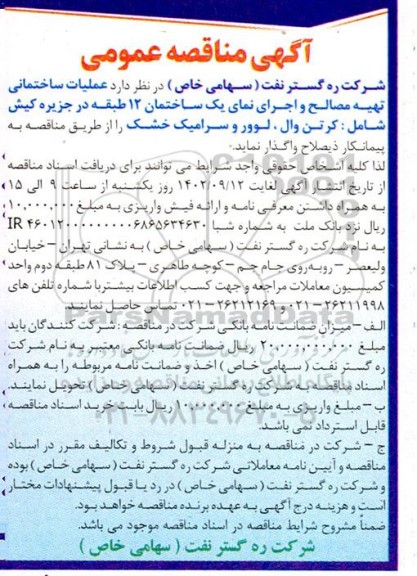 آگهی مناقصه عمومی
شرکت ره گستر نفت ( سهامی خاص ) در نظر دارد عملیات ساختمانی
تهیه مصالح و اجرای نمای یک ساختمان ۱۲ طبقه در جزیره کیش
شامل : کرتن وال ، لوور و سرامیک خشک را از طریق مناقصه به
پیمانکار ذیصلاح واگذار نماید.
لذا کلیه اشخاص حقوقی واجد شرایط می توانند برای دریافت اسناد مناقصه
از تاریخ انتشار آگهی لغایت ۱۴۰۲/۰۹/۱۲ روز یکشنبه از ساعت ۹ الی ۱۵
به همراه داشتن معرفی نامه و ارائه فیش واریزی به مبلغ ۱۰,۰۰۰,۰۰۰
ریال نزد بانک ملت به شماره شبا IR
به نام شرکت ره گستر نفت ( سهامی خاص ) به نشانی تهران – خیابان
ولیعصر – روبه‌روی جام جم – کوچه طاهری – پلاک ۸۱ طبقه دوم واحد
کمیسیون معاملات مراجعه و جهت کسب اطلاعات بیشتر با شماره تلفن های
۲۶۲۱۱۹۹۸–۰۲۱ و ۲۶۲۱۲۱۶۹–۰۲۱ تماس حاصل نمایند.
الف – میزان ضمانت نامه بانکی شرکت در مناقصه : شرکت کنندگان باید
مبلغ ۲۰,۰۰۰,۰۰۰,۰۰۰ ریال ضمانت نامه بانکی معتبر به نام شرکت
ره گستر نفت ( سهامی خاص ) اخذ و ضمانت نامه مربوطه را به همراه
اسناد مناقصه به شرکت ره گستر نفت ( سهامی خاص ) تحویل نمایند.
ب – مبلغ واریزی به مبلغ ۱۰,۰۰۰,۰۰۰ ریال بابت خرید اسناد مناقصه
قابل استرداد نمی باشد.
ج – شرکت در مناقصه به منزله قبول شروط و تکالیف مقرر در اسناد
مناقصه و آیین نامه معاملاتی شرکت ره گستر نفت ( سهامی خاص ) بوده
و شرکت ره گستر نفت ( سهامی خاص ) در رد یا قبول پیشنهادات مختار
است و هزینه درج آگهی به عهده برنده مناقصه خواهد بود.
ضمناً مشروح شرایط مناقصه در اسناد مناقصه موجود می باشد.
شرکت ره گستر نفت ( سهامی خاص )
ParsNamadData